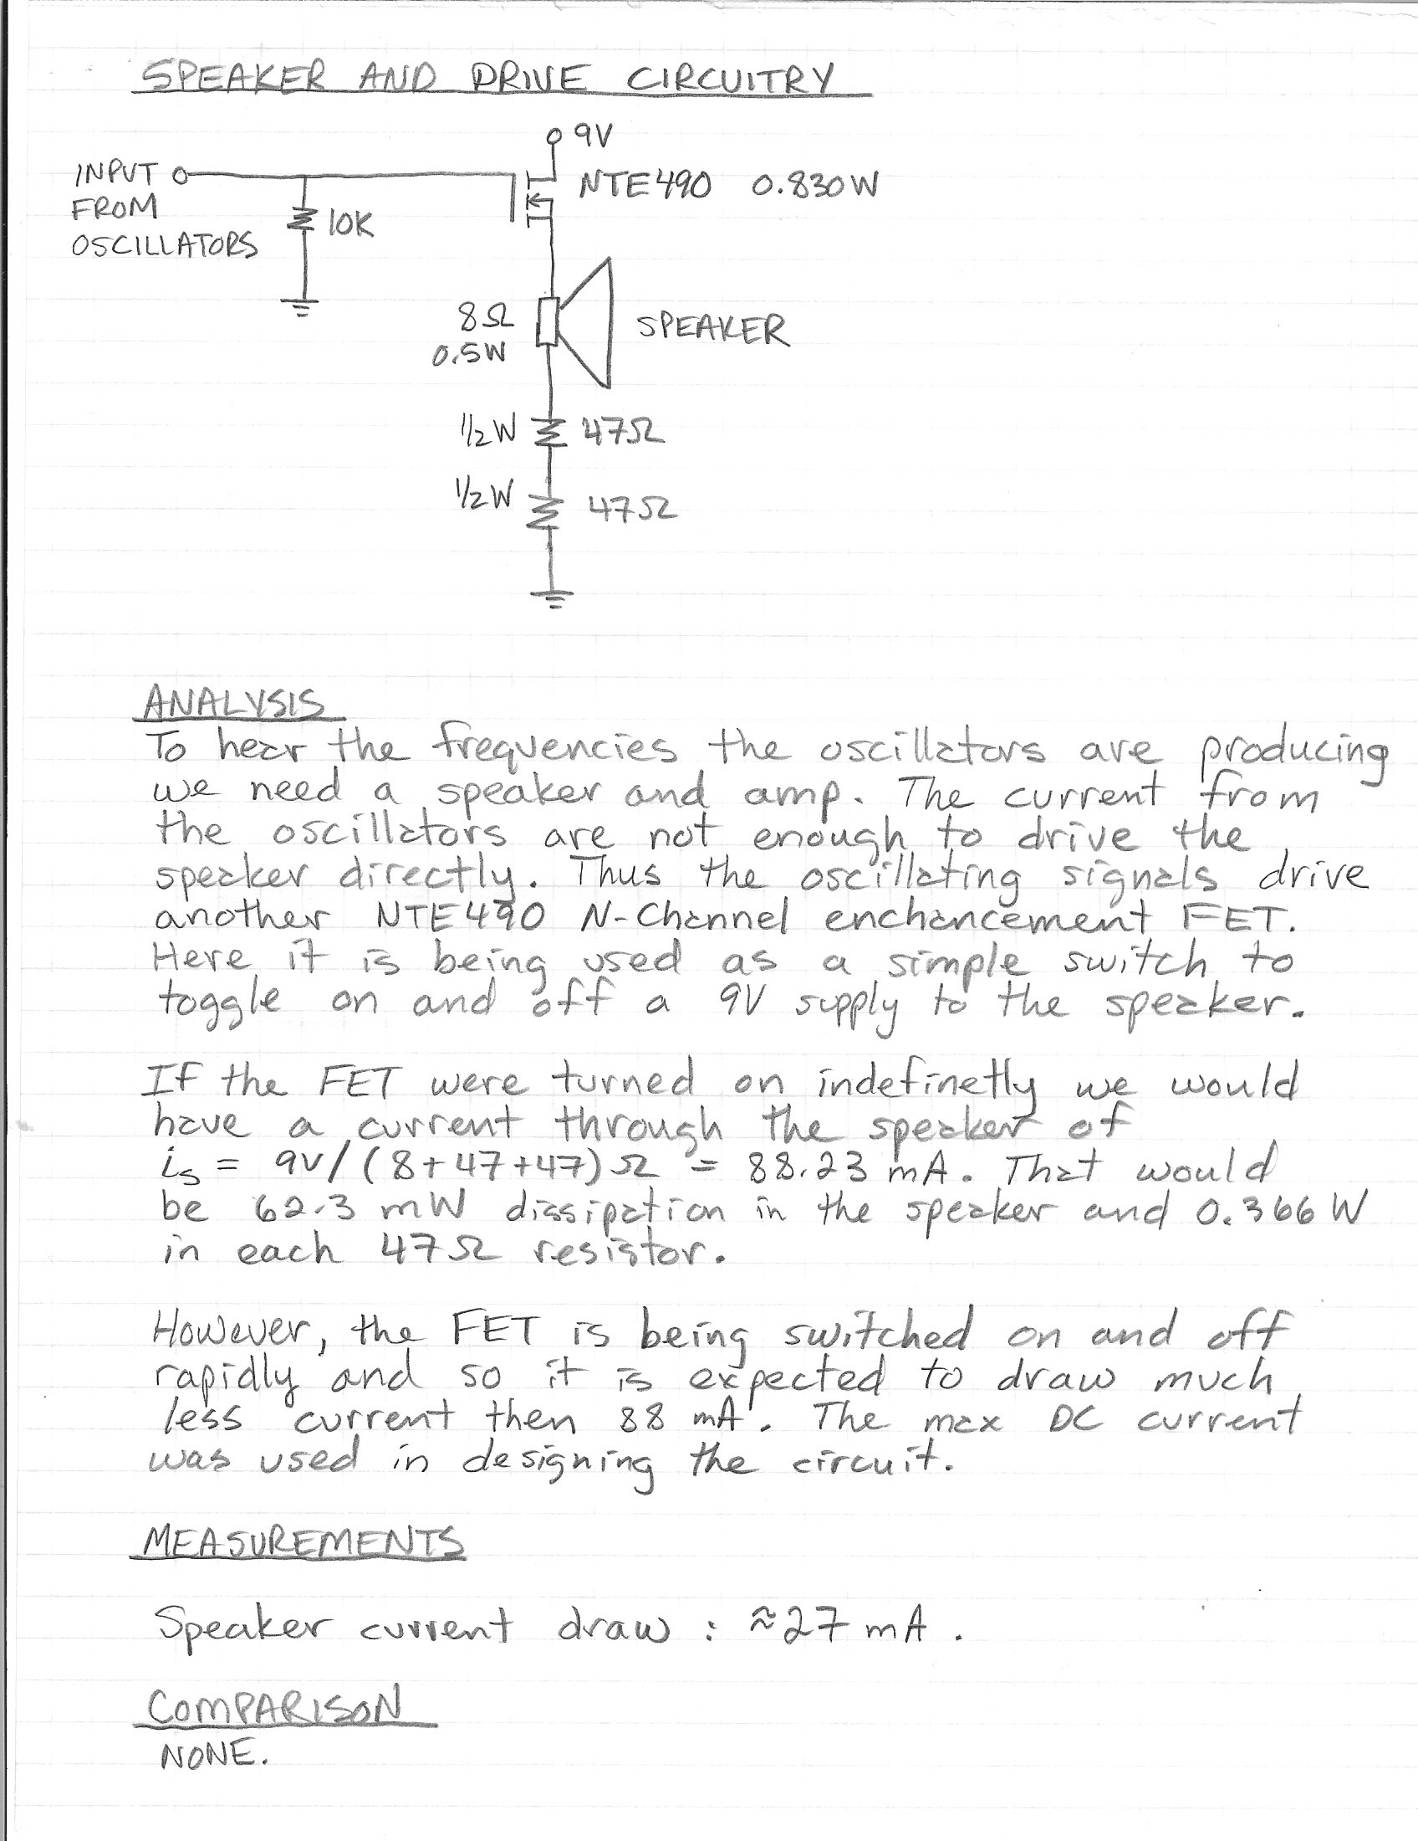 SPEAKER AND DRIVE CIRCUITRY
9V
INPUT
FROM
OSCILLATORS
10K
NTE490 0.830W
8Ω
0.5W
SPEAKER
1/2W 47Ω
1/2W 47Ω
ANALYSIS
To hear the frequencies the oscillators are producing
we need a speaker and amp. The current from
the oscillators are not enough to drive the
speaker directly. Thus the oscillating signals drive
another NTE490 N-Channel enchancement FET.
Here it is being used as a simple switch to
toggle on and off a 9V supply to the speaker.
If the FET were turned on indefinetly we would
have a current through the speaker of
is = 9V/(8+47+47)Ω = 88.23 mA. That would
be 62.3 mW dissipation in the speaker and 0.366 W
in each 47Ω resistor.
However, the FET is being switched on and off
rapidly and so it is expected to draw much
less current then 88 mA. The max DC current
was used in designing the circuit.
MEASUREMENTS
Speaker current draw : ≈27 mA.
COMPARISON
NONE.